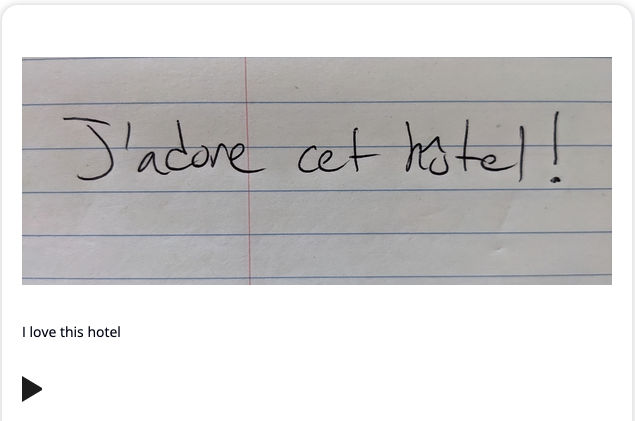 J'adore cet hôtel!
I love this hotel